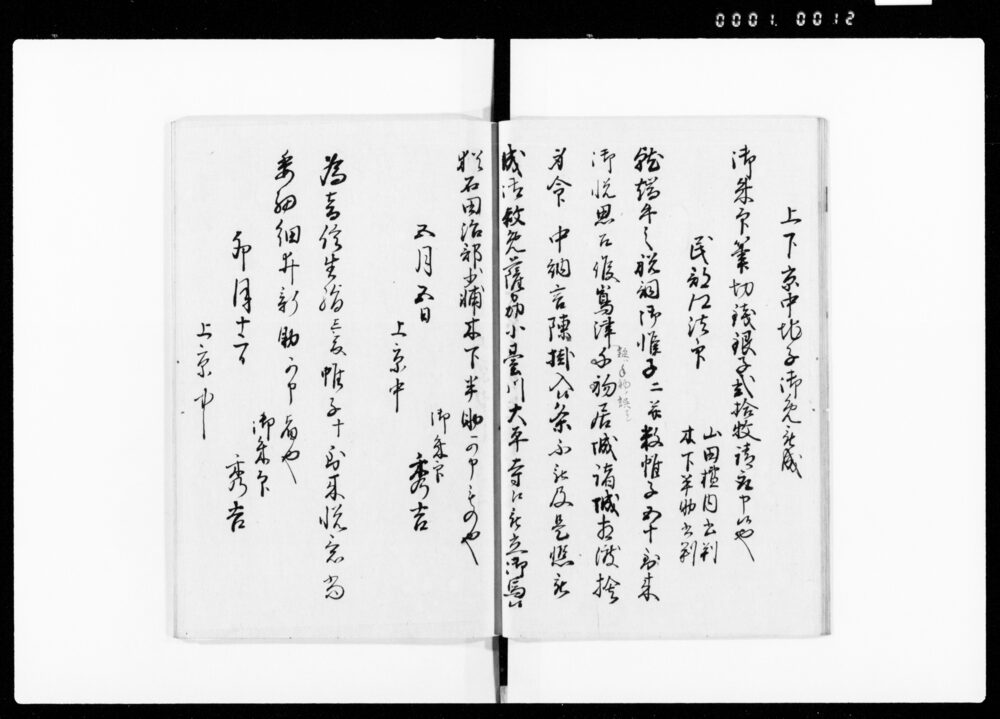 0001.0012
上下京中地子御免被成
御朱印筆功銭銀子弐拾枚請取申候也
山田橘内書判
木下半助書判
民部卿法印
就端午之祝詞御帷子二并数帷子五十到来
御悦思召候嶌津
居城諸城相渡捨
身命中納言陳掛入候条不被及是非被
成御赦免薩
川大平寺江被立御馬候
猶石田治部少輔木下半助可申候也
五月五日
御朱印
秀吉
上京中
為音信生
帷子十到来悦
委細細井新助可申
候也
卯月十一日
御朱印
秀吉
上京中